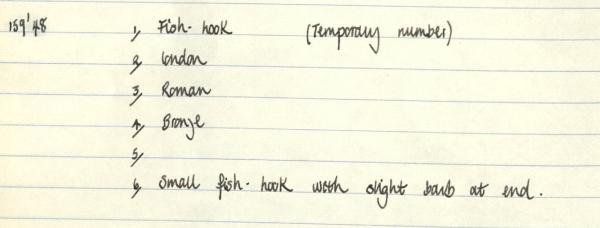 159'48 1, Fish-hook (Temporary number)
2, London
3, Roman
4, Bronze
5,
6, Small fish-hook with slight barb at end.